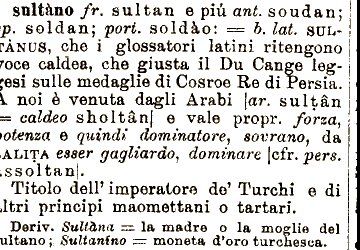 sultàno fr. sultan e più ant. soudan;
sp. soldan; port. soldào: = b. lat. SUL-
TÀNUS, che i glossatori latini ritengono
voce caldea, che giusta il Du Cange leg-
gesi sulle medaglie di Cosroe Re di Persia.
A noi è venuta dagli Arabi |ar. sulṭân
= caldeo sholtân| e vale propr. forza,
potenza e quindi dominatore, sovrano, da
SALITA esser gagliardo, dominare |cfr. pers.
assoltan|.
Titolo dell' imperatore de' Turchi e di
altri principi maomettani o tartari.
Deriv. Sultàna = la madre o la moglie del
sultano; Sultanino = moneta d'oro turchesca.